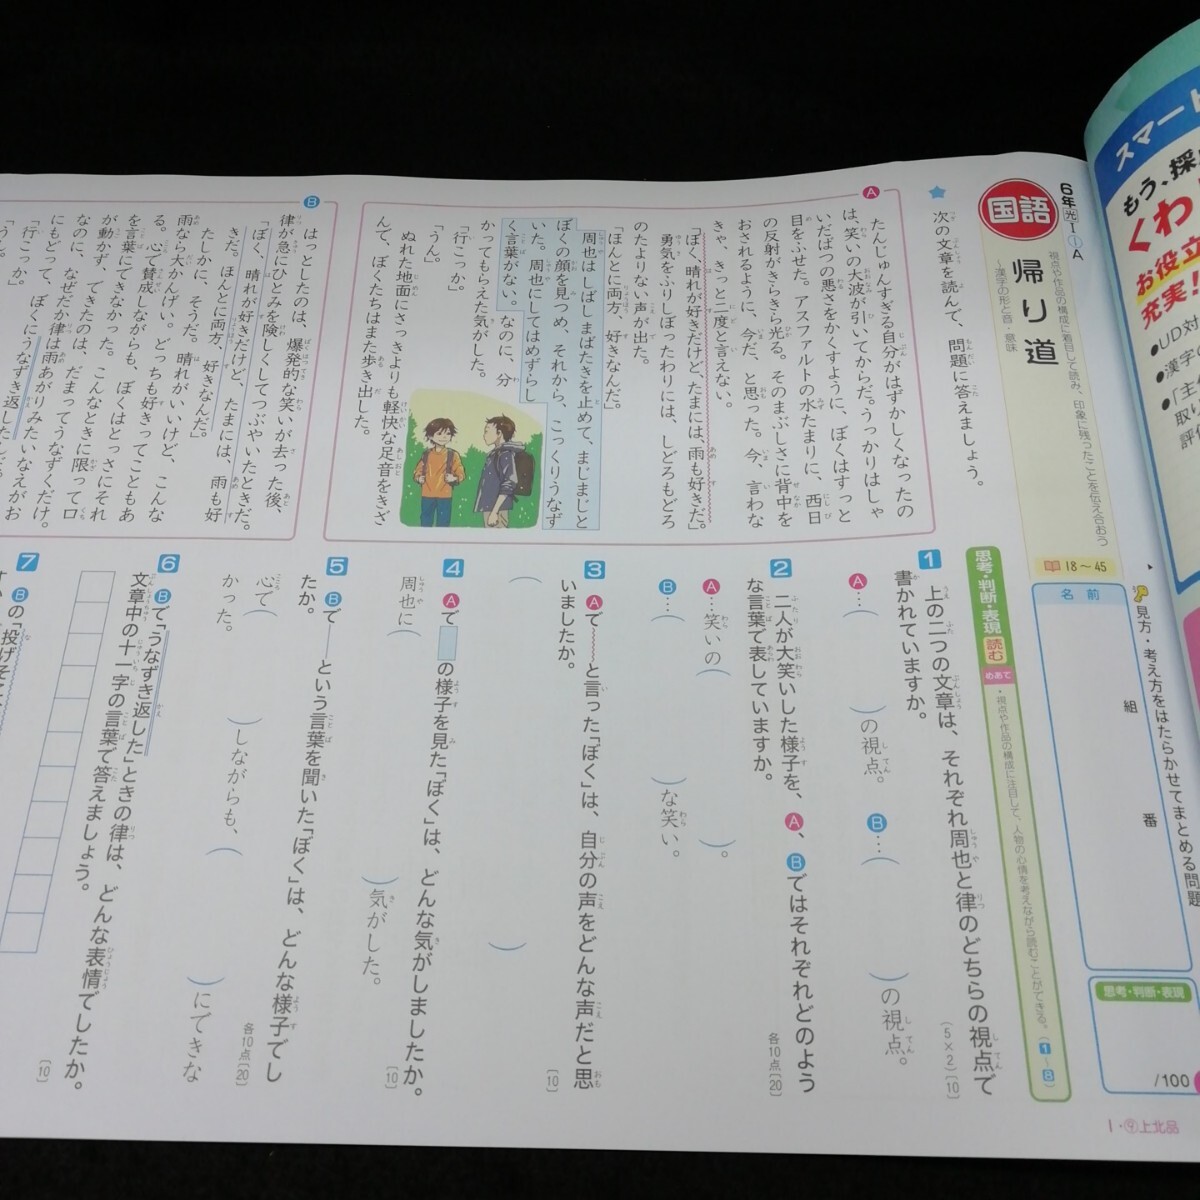 スマート
もう、採
くわ
お役立
充実!
●UD対
●漢字の
●「主
取り
評価
見方・考え方をはたらかせてまとめる問題
6年 光Ⅰ ① A
国語
視点や作品の構成に着目して読み、印象に残ったことを伝え合おう
帰り道
~漢字の形と音・意味
18~45
名前
組
番
思考・判断・表現
/100
Ⅰ・⑨上北品
★次の文章を読んで、問題に答えましょう。
A
たんじゅんすぎる自分がはずかしくなったの
は、笑いの大波が引いてからだ。うっかりはしゃ
いだばつの悪さをかくすように、ぼくはすっと
目をふせた。アスファルトの水たまりに、西日
の反射がきらきら光る。そのまぶしさに背中を
おされるように、今だ、と思った。今、言わな
きゃ、きっと二度と言えない。
「ぼく、晴れが好きだけど、たまには、雨も好きだ。
勇気をふりしぼったわりには、しどろもどろ
のたよりない声が出た。
「ほんとに両方、好きなんだ。」
周也はしばしまばたきを止めて、まじまじと
ぼくの顔を見つめ、それから、こっくりうなず
いた。周也にしてはめずらし
く言葉がない。なのに、分
かってもらえた気がした。
「行こっか。」
「うん。」
ぬれた地面にさっきよりも軽快な足音をきざ
んで、ぼくたちはまた歩き出した。
B
はっとしたのは、爆発的な笑いが去った後、
律が急にひとみを険しくしてつぶやいたときだ。
「ぼく、晴れが好きだけど、たまには、雨も好
きだ。ほんとに両方、好きなんだ。」
たしかに、そうだ。晴れがいいけど、こんな
雨なら大かんげい。どっちも好きってこともあ
る。心で賛成しながらも、ぼくはとっさにそれ
を言葉にできなかった。こんなときに限って口
が動かず、できたのは、だまってうなずくだけ。
なのに、なぜだか律は雨あがりみたいなえがお
にもどって、ぼくにうなずき返した
「行こっか。」
「うん。
思考・判断・表現 読む
めあて
・視点や作品の構成に注目して、人物の心情を考えながら読むことができる。(1~8)
1 上の二つの文章は、それぞれ周也と律のどちらの視点で
書かれていますか。
(5×2)[10]
A…( )の視点。 B…( )の視点。
2 二人が大笑いした様子を、A、Bではそれぞれどのよう
な言葉で表していますか。
各10点[20]
A…笑いの( )。
B…( )な笑い。
3 Aで~~~と言った「ぼく」は、自分の声をどんな声だと思
いましたか。
[10]
( )
4 Aで の様子を見た「ぼく」は、どんな気がしましたか。
[10]
周也に( )気がした。
5 Bで――という言葉を聞いた「ぼく」は、どんな様子でし
たか。
各10点[20]
心で( )しながらも、( )にできな
かった。
6 Bで「うなずき返した」ときの律は、どんな表情でしたか。
文章中の十一字の言葉で答えましょう。
[10]
7 Bの「投げそこ